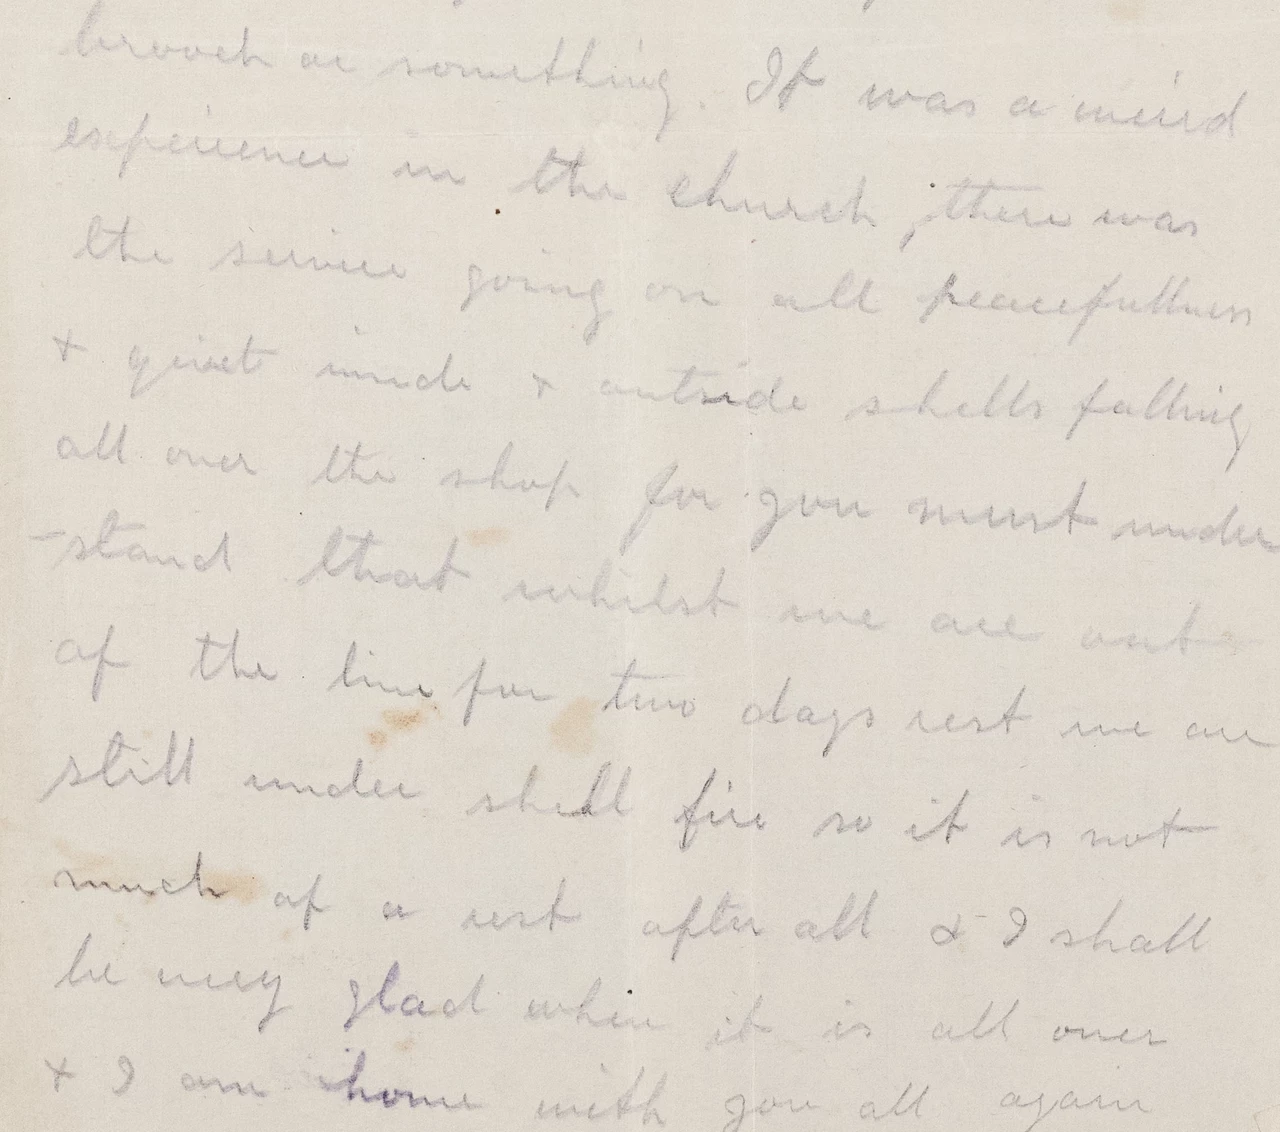 brooch or something. It was a weird
experience in the church, there was
the service going on all peacefullness
+ quiet inside + outside shells falling
all over the shop for you must under
-stand that whilst we are out
of the line for two days rest we are
still under shell fire so it is not
much of a rest after all & I shall
be very glad when it is all over
+ I am home with you all again